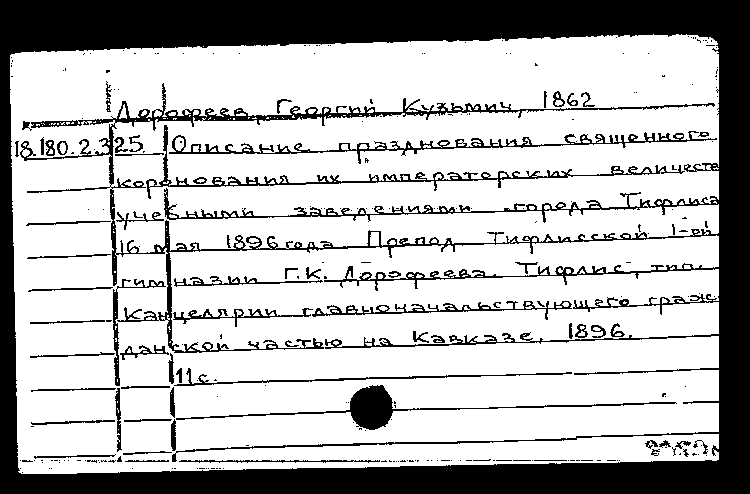 Дорофеев, Георгий Кузьмич, 1862
18.180.2.325 Описание празднования священного
коронования их императорских величеств
учебными заведениями города Тифлиса
16 мая 1896 года. Препод. Тифлисской 1-ой
гимназии Г.К. Дорофеева. Тифлис, тип.
Канцелярии главноначальствующего граж-
данской частью на Кавказе, 1896.
11 с.